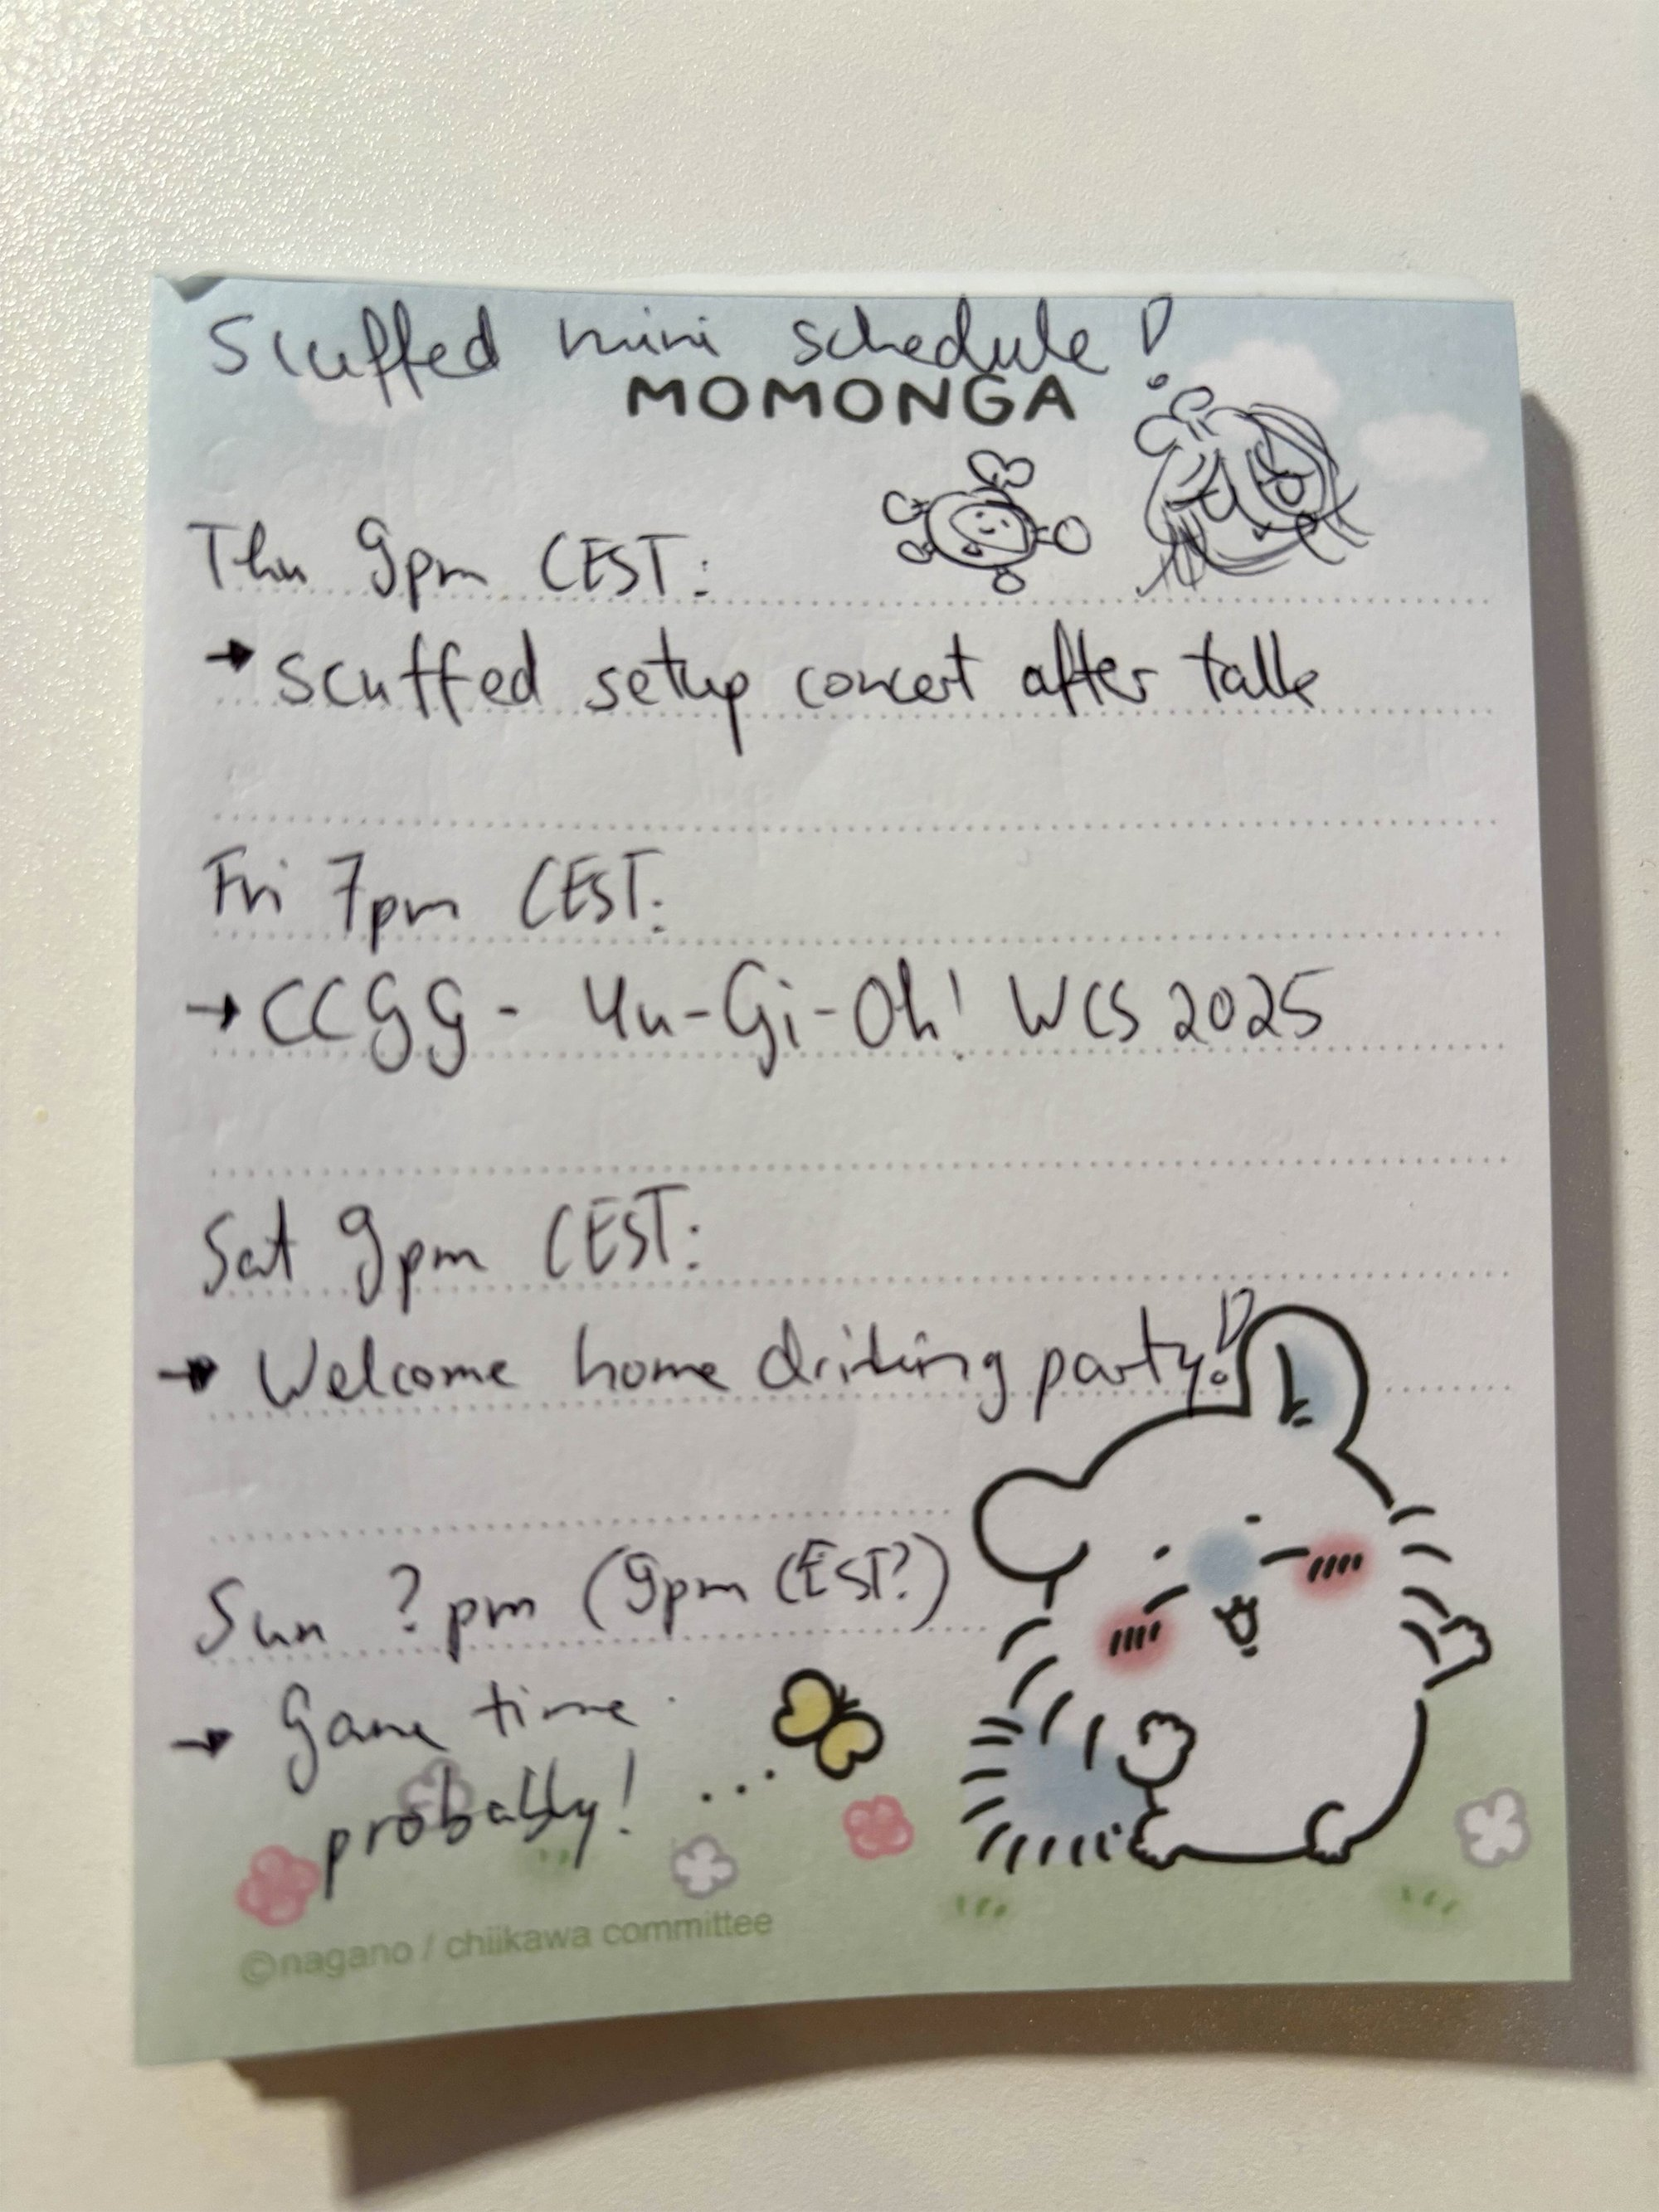 Scuffed mini schedule!
MOMONGA
Thu 9pm CEST:
→ scuffed setup concert after talk
Fri 7pm CEST:
→ CCGG - Yu-Gi-Oh! WCS 2025
Sat 9pm CEST:
→ Welcome home drinking party!
Sun ?pm (9pm CEST?)
→ Game time
probably!
©nagano / chiikawa committee